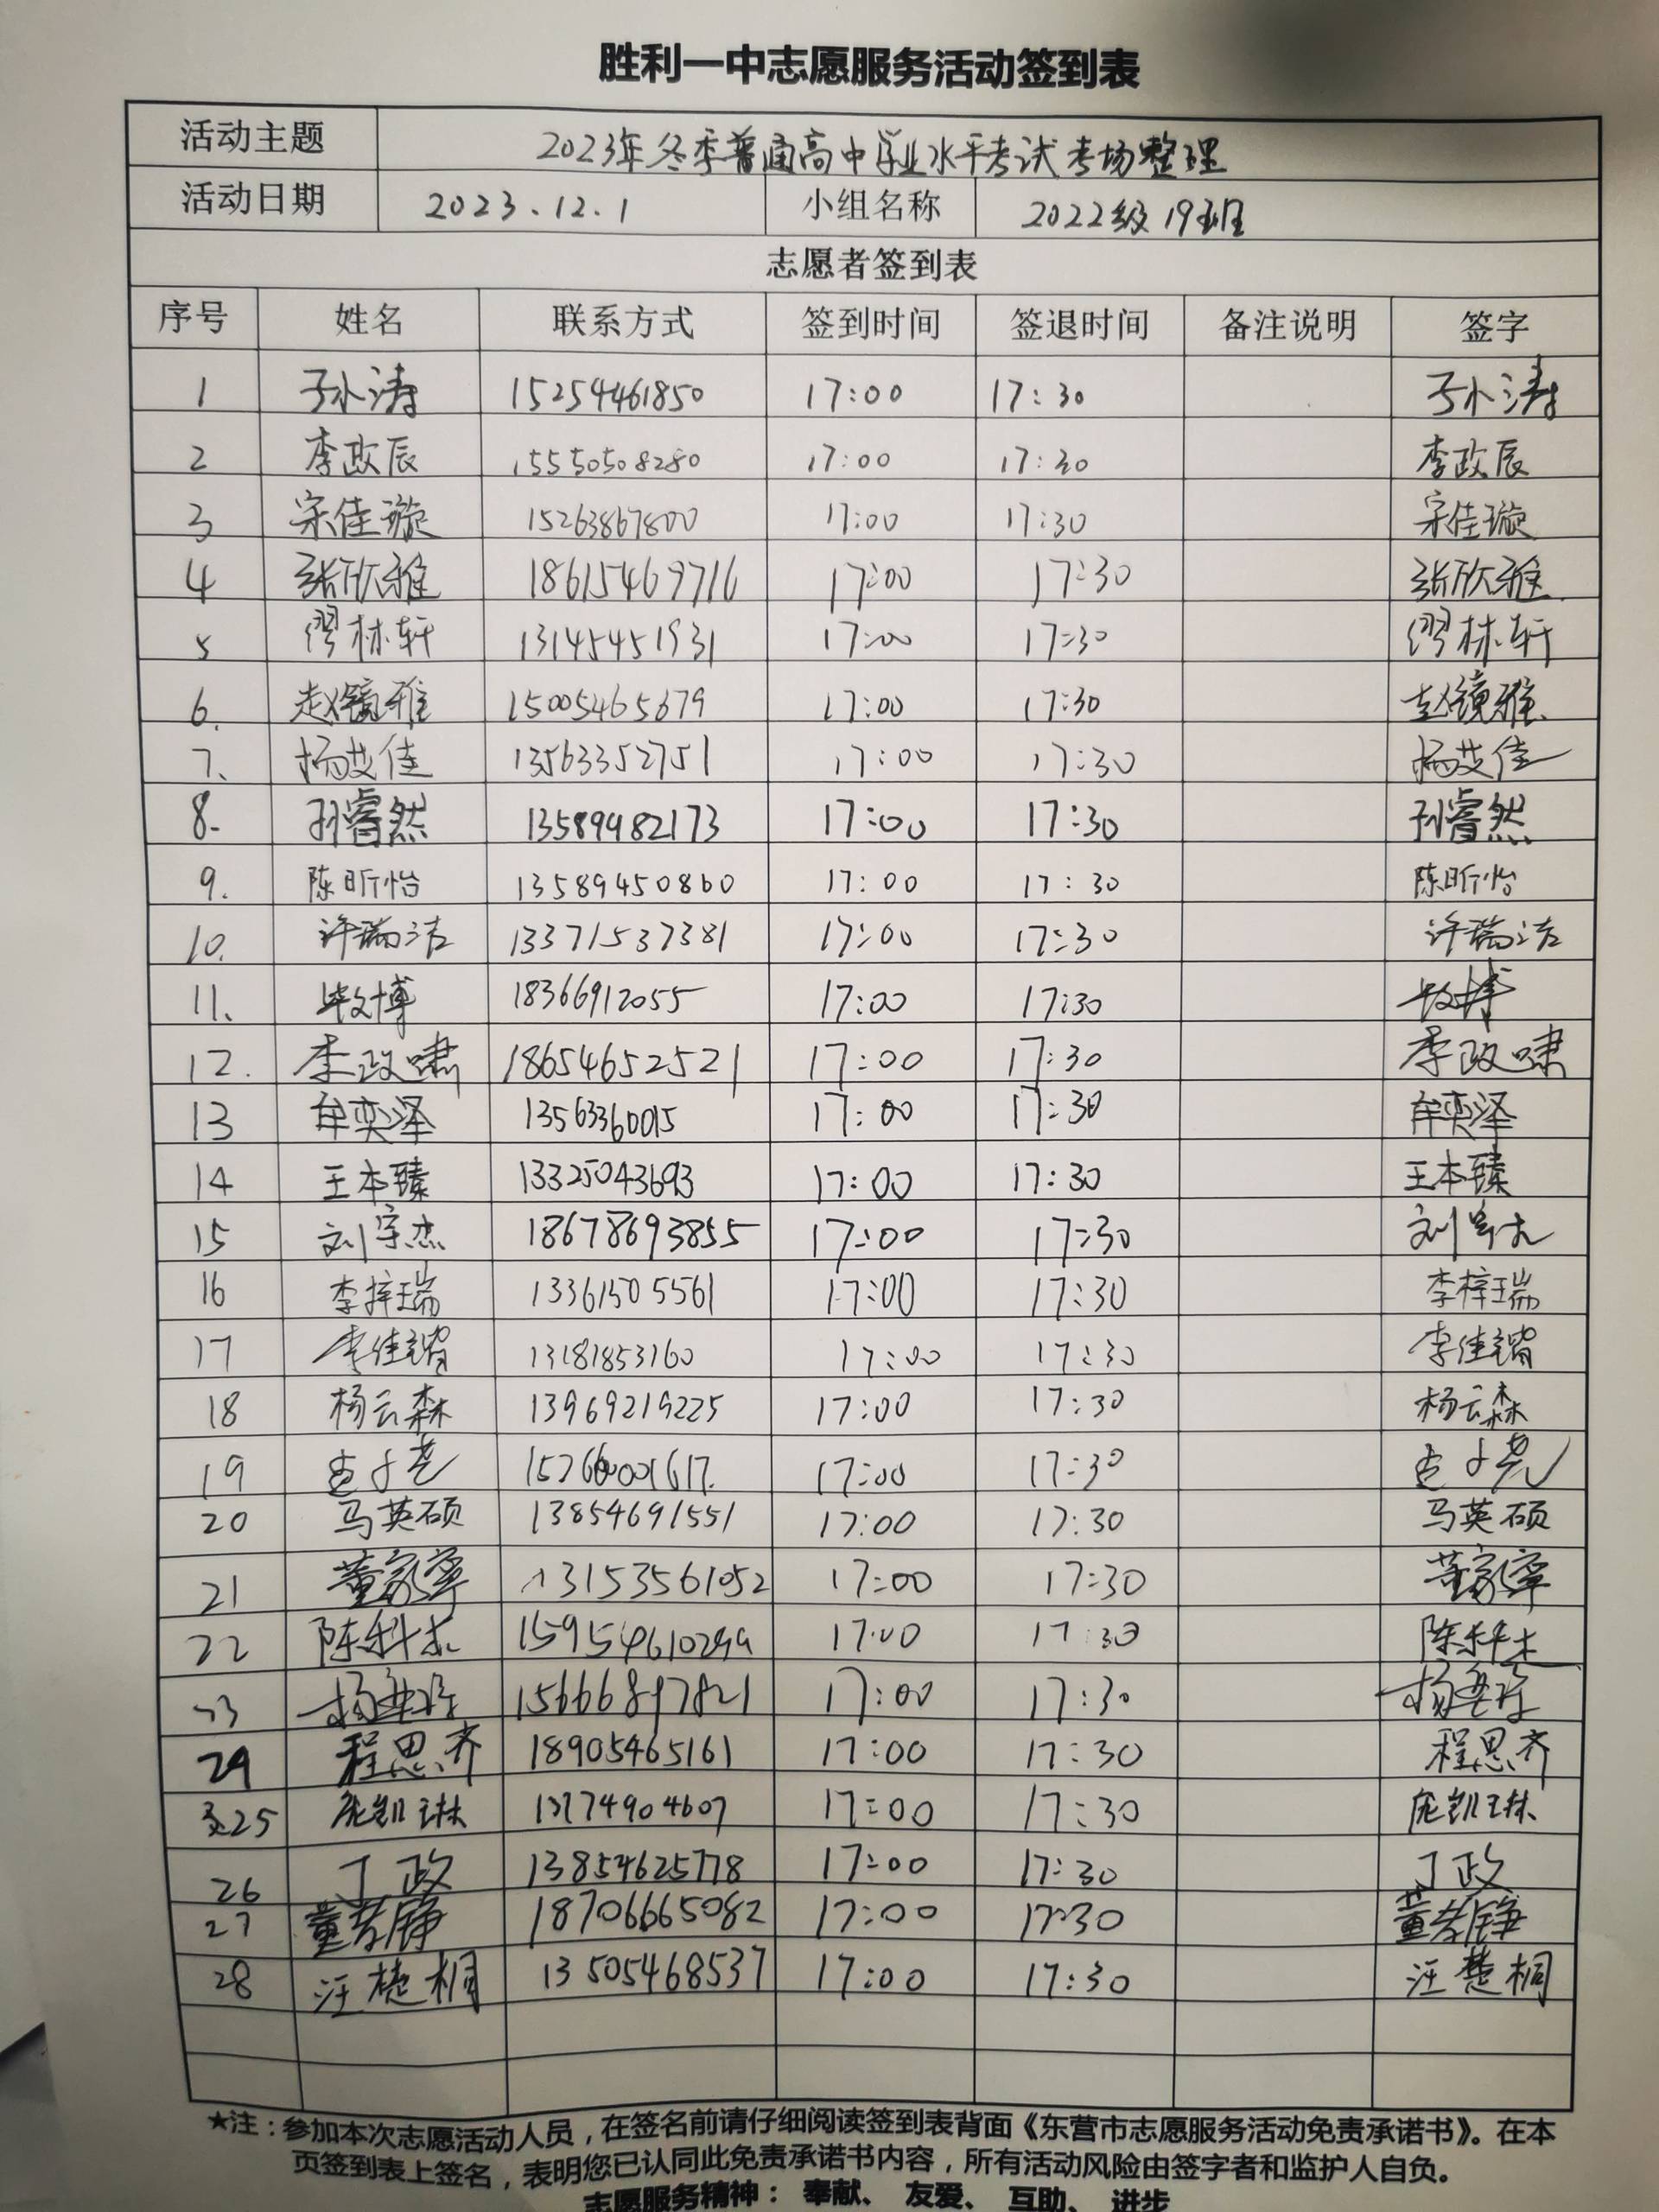 胜利一中志愿服务活动签到表
活动主题 2023年冬季普通高中学业水平考试考场整理
活动日期 2023.12.1 小组名称 2022级19班
志愿者签到表
序号 姓名 联系方式 签到时间 签退时间 备注说明 签字
1 孙涛 15254461850 17:00 17:30 孙涛
2 李政辰 15550508280 17:00 17:30 李政辰
3 宋佳璇 15263867800 17:00 17:30 宋佳璇
4 张欣雅 18615469716 17:00 17:30 张欣雅
5 缪林轩 13145451931 17:00 17:30 缪林轩
6. 赵镜雅 15005465679 17:00 17:30 赵镜雅
7、 杨艾佳 13563352751 17:00 17:30 杨艾佳
8. 孙睿然 13589982173 17:00 17:30 孙睿然
9. 陈昕怡 13589450860 17:00 17:30 陈昕怡
10. 许瑞洁 13371537381 17:00 17:30 许瑞洁
11、 18366912055 17:00 17:30
12. 李政啸 18654652521 17:00 17:30 李政啸
13 牟奕泽 13563360015 17:00 17:30 牟奕泽
14 王本臻 13325043693 17:00 17:30 王本臻
15 刘宇杰 18678693855 17:00 17:30 刘宇杰
16 李梓瑞 13361505561 17:00 17:30 李梓瑞
17 李佳锴 13181853160 17:00 17:30 李佳锴
18 杨云森 13969219225 17:00 17:30 杨云森
19 17:00 17:30
20 马英硕 13854691551 17:00 17:30 马英硕
21 董家宁 13153561052 17:00 17:30 董家宁
22 陈科杰 17:00 17:30 陈科杰
23 15666897821 17:00 17:30
24 程思齐 18905465161 17:00 17:30 程思齐
25 庞凯琳 17:00 17:30 庞凯琳
26 丁政 13854625778 17:00 17:30 丁政
27 董孝铮 18706665082 17:00 17:30 董孝铮
28 汪楚桐 13505468537 17:00 17:30 汪楚桐
★注：参加本次志愿活动人员，在签名前请仔细阅读签到表背面《东营市志愿服务活动免责承诺书》。在本
页签到表上签名，表明您已认同此免责承诺书内容，所有活动风险由签字者和监护人自负。
志愿服务精神： 奉献、 友爱、 互助、 进步